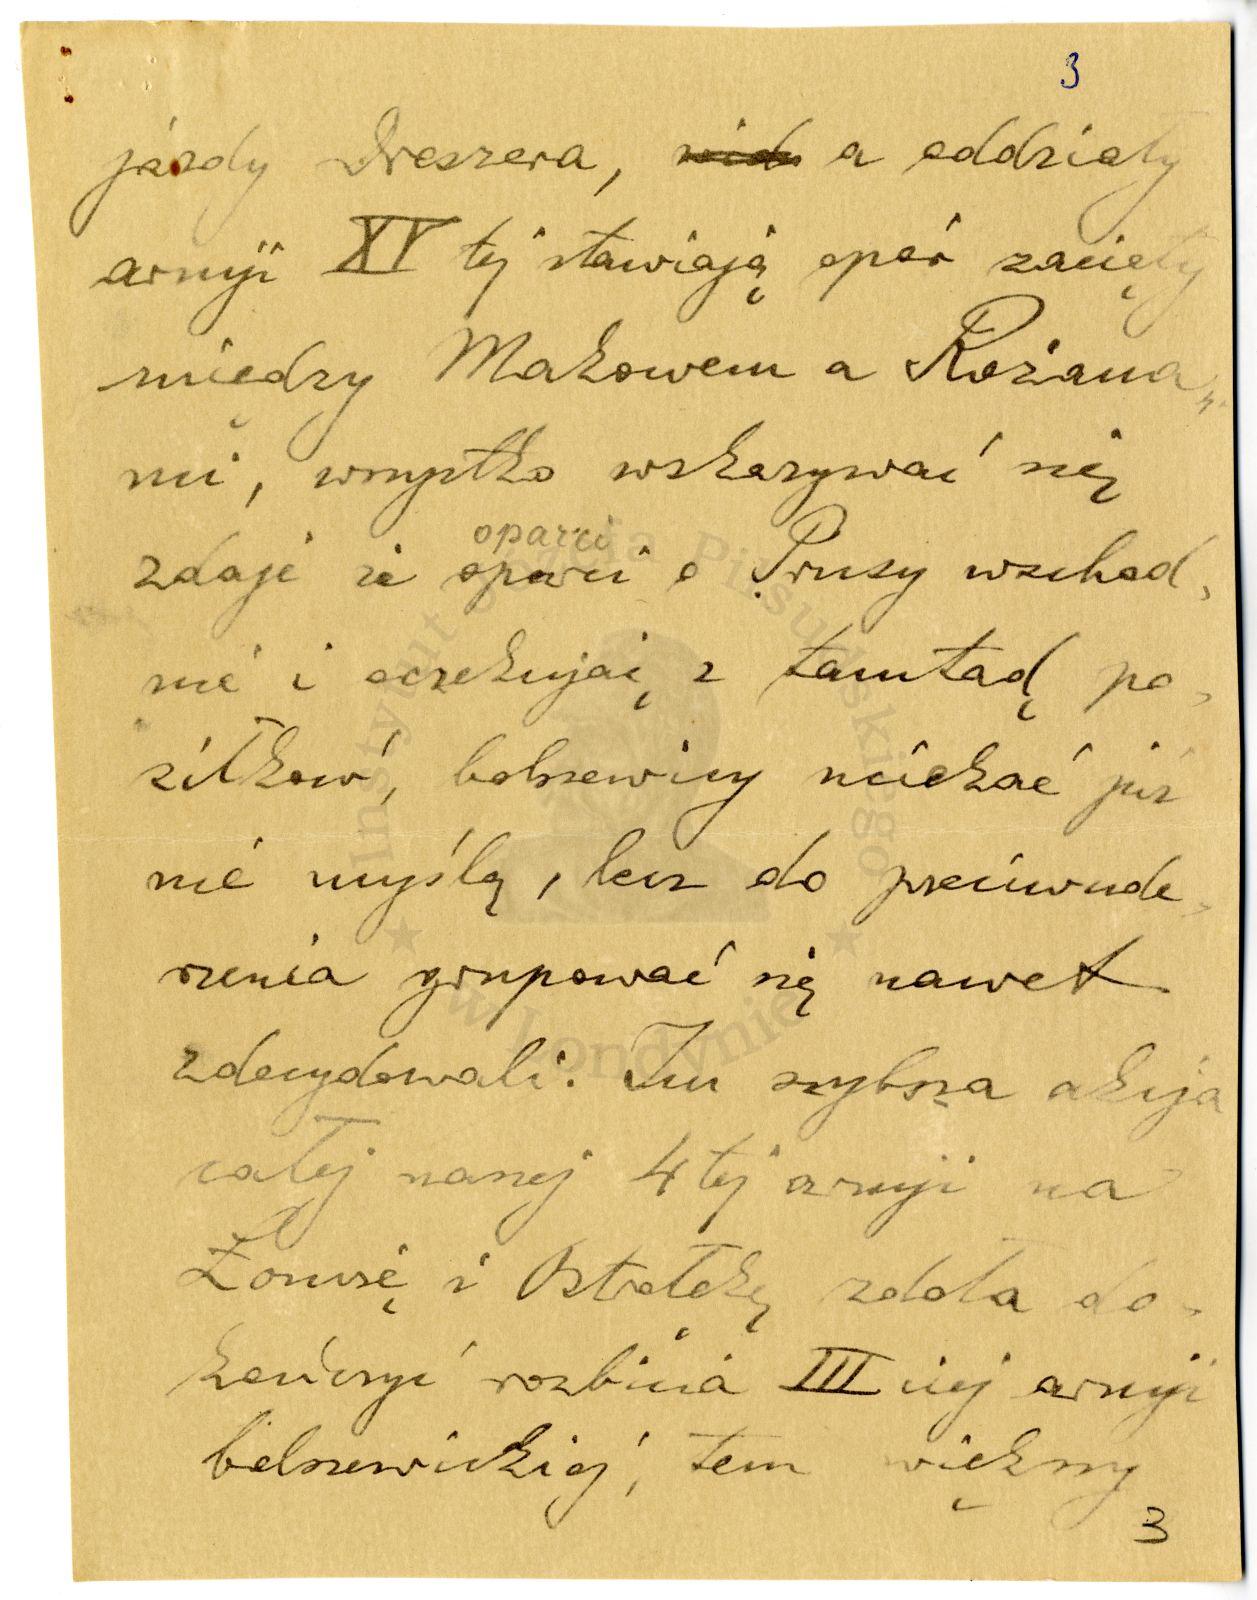 3
jazdy Dreszera, a oddziały
armji XV tej stawiają opór zacięty
między Makowem a Rożana,
mi, wszystko wskazywać się
zdaje że oparci o Prusy wschod,
oparci
nie i oczekując z tamtąd po,
siłków, bolszewicy uciekać już
nie myślą, lecz do przeciwude,
rzenia grupować się nawet
zdecydowali. Im szybsza akcja
całej naszej 4 tej armji na
Łomżę i Ostrołękę zdoła do,
kończyć rozbicia III ciej armji
bolszewickiej, tem większy
3
Instytut Józefa Piłsudskiego
w Londynie